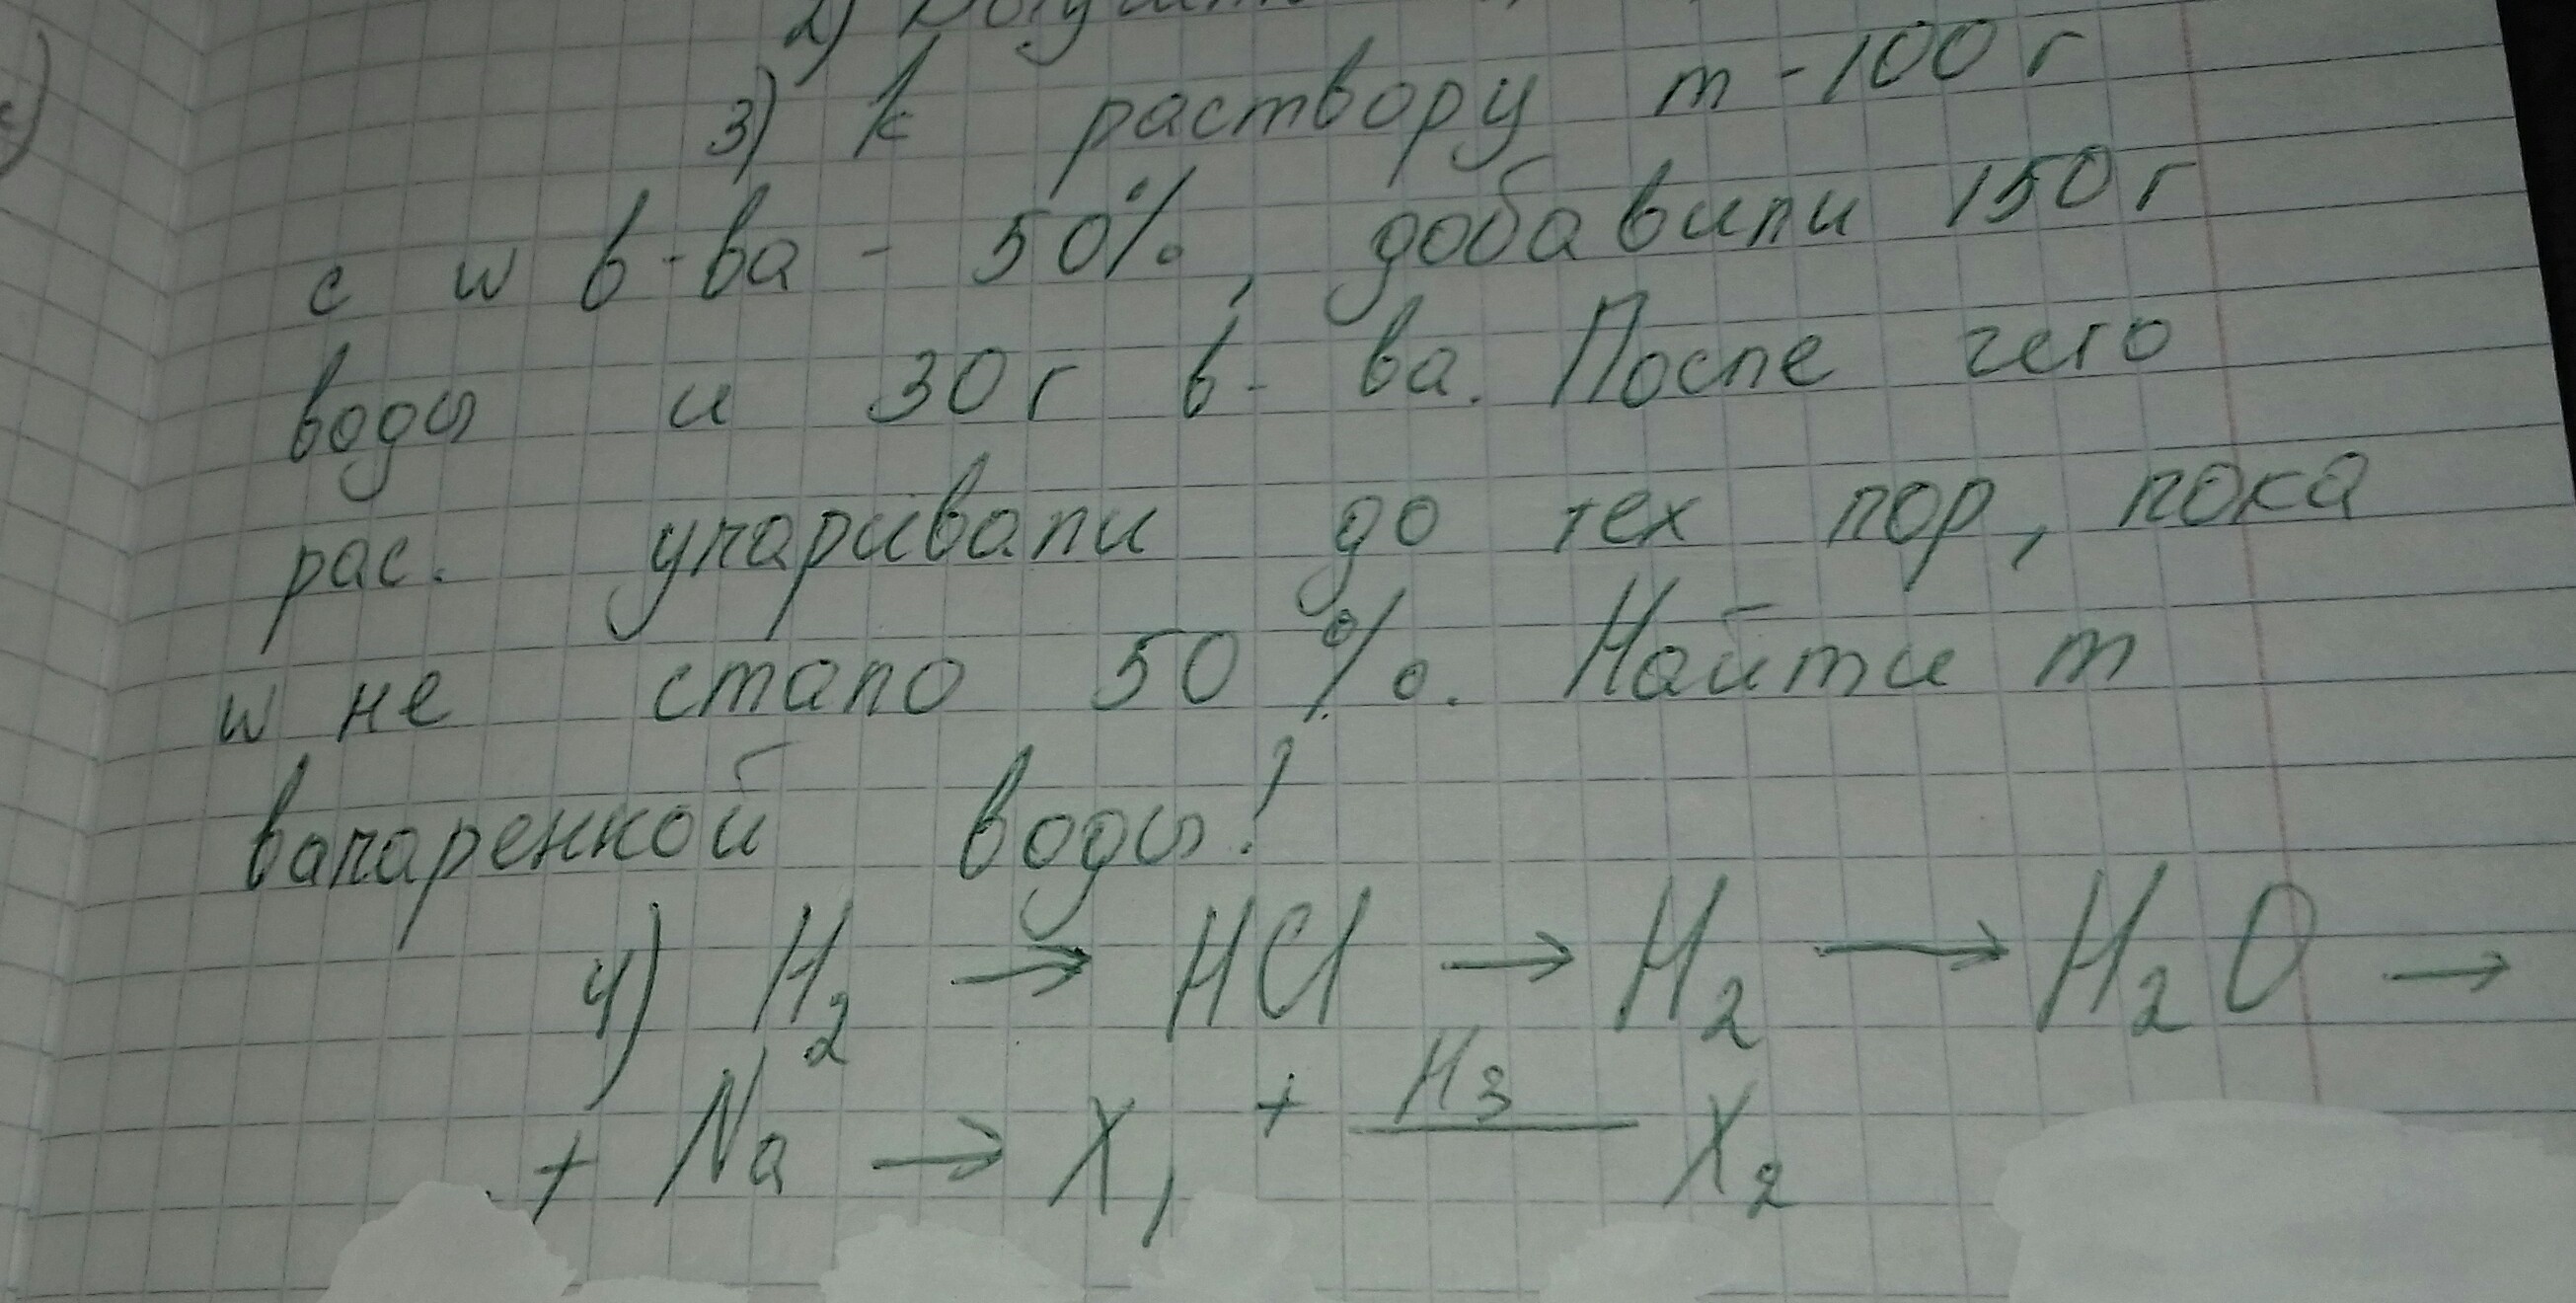 3) К раствору m - 100 г
с w в-ва - 50%, добавили 150 г
воды и 30 г в-ва. После чего
рас. упаривали до тех пор, пока
w не стало 50%. Найти m
вапаренной воды!
4) H₂ → HCl → H₂ → H₂O →
+ Na → X₁ + H₃ X₂